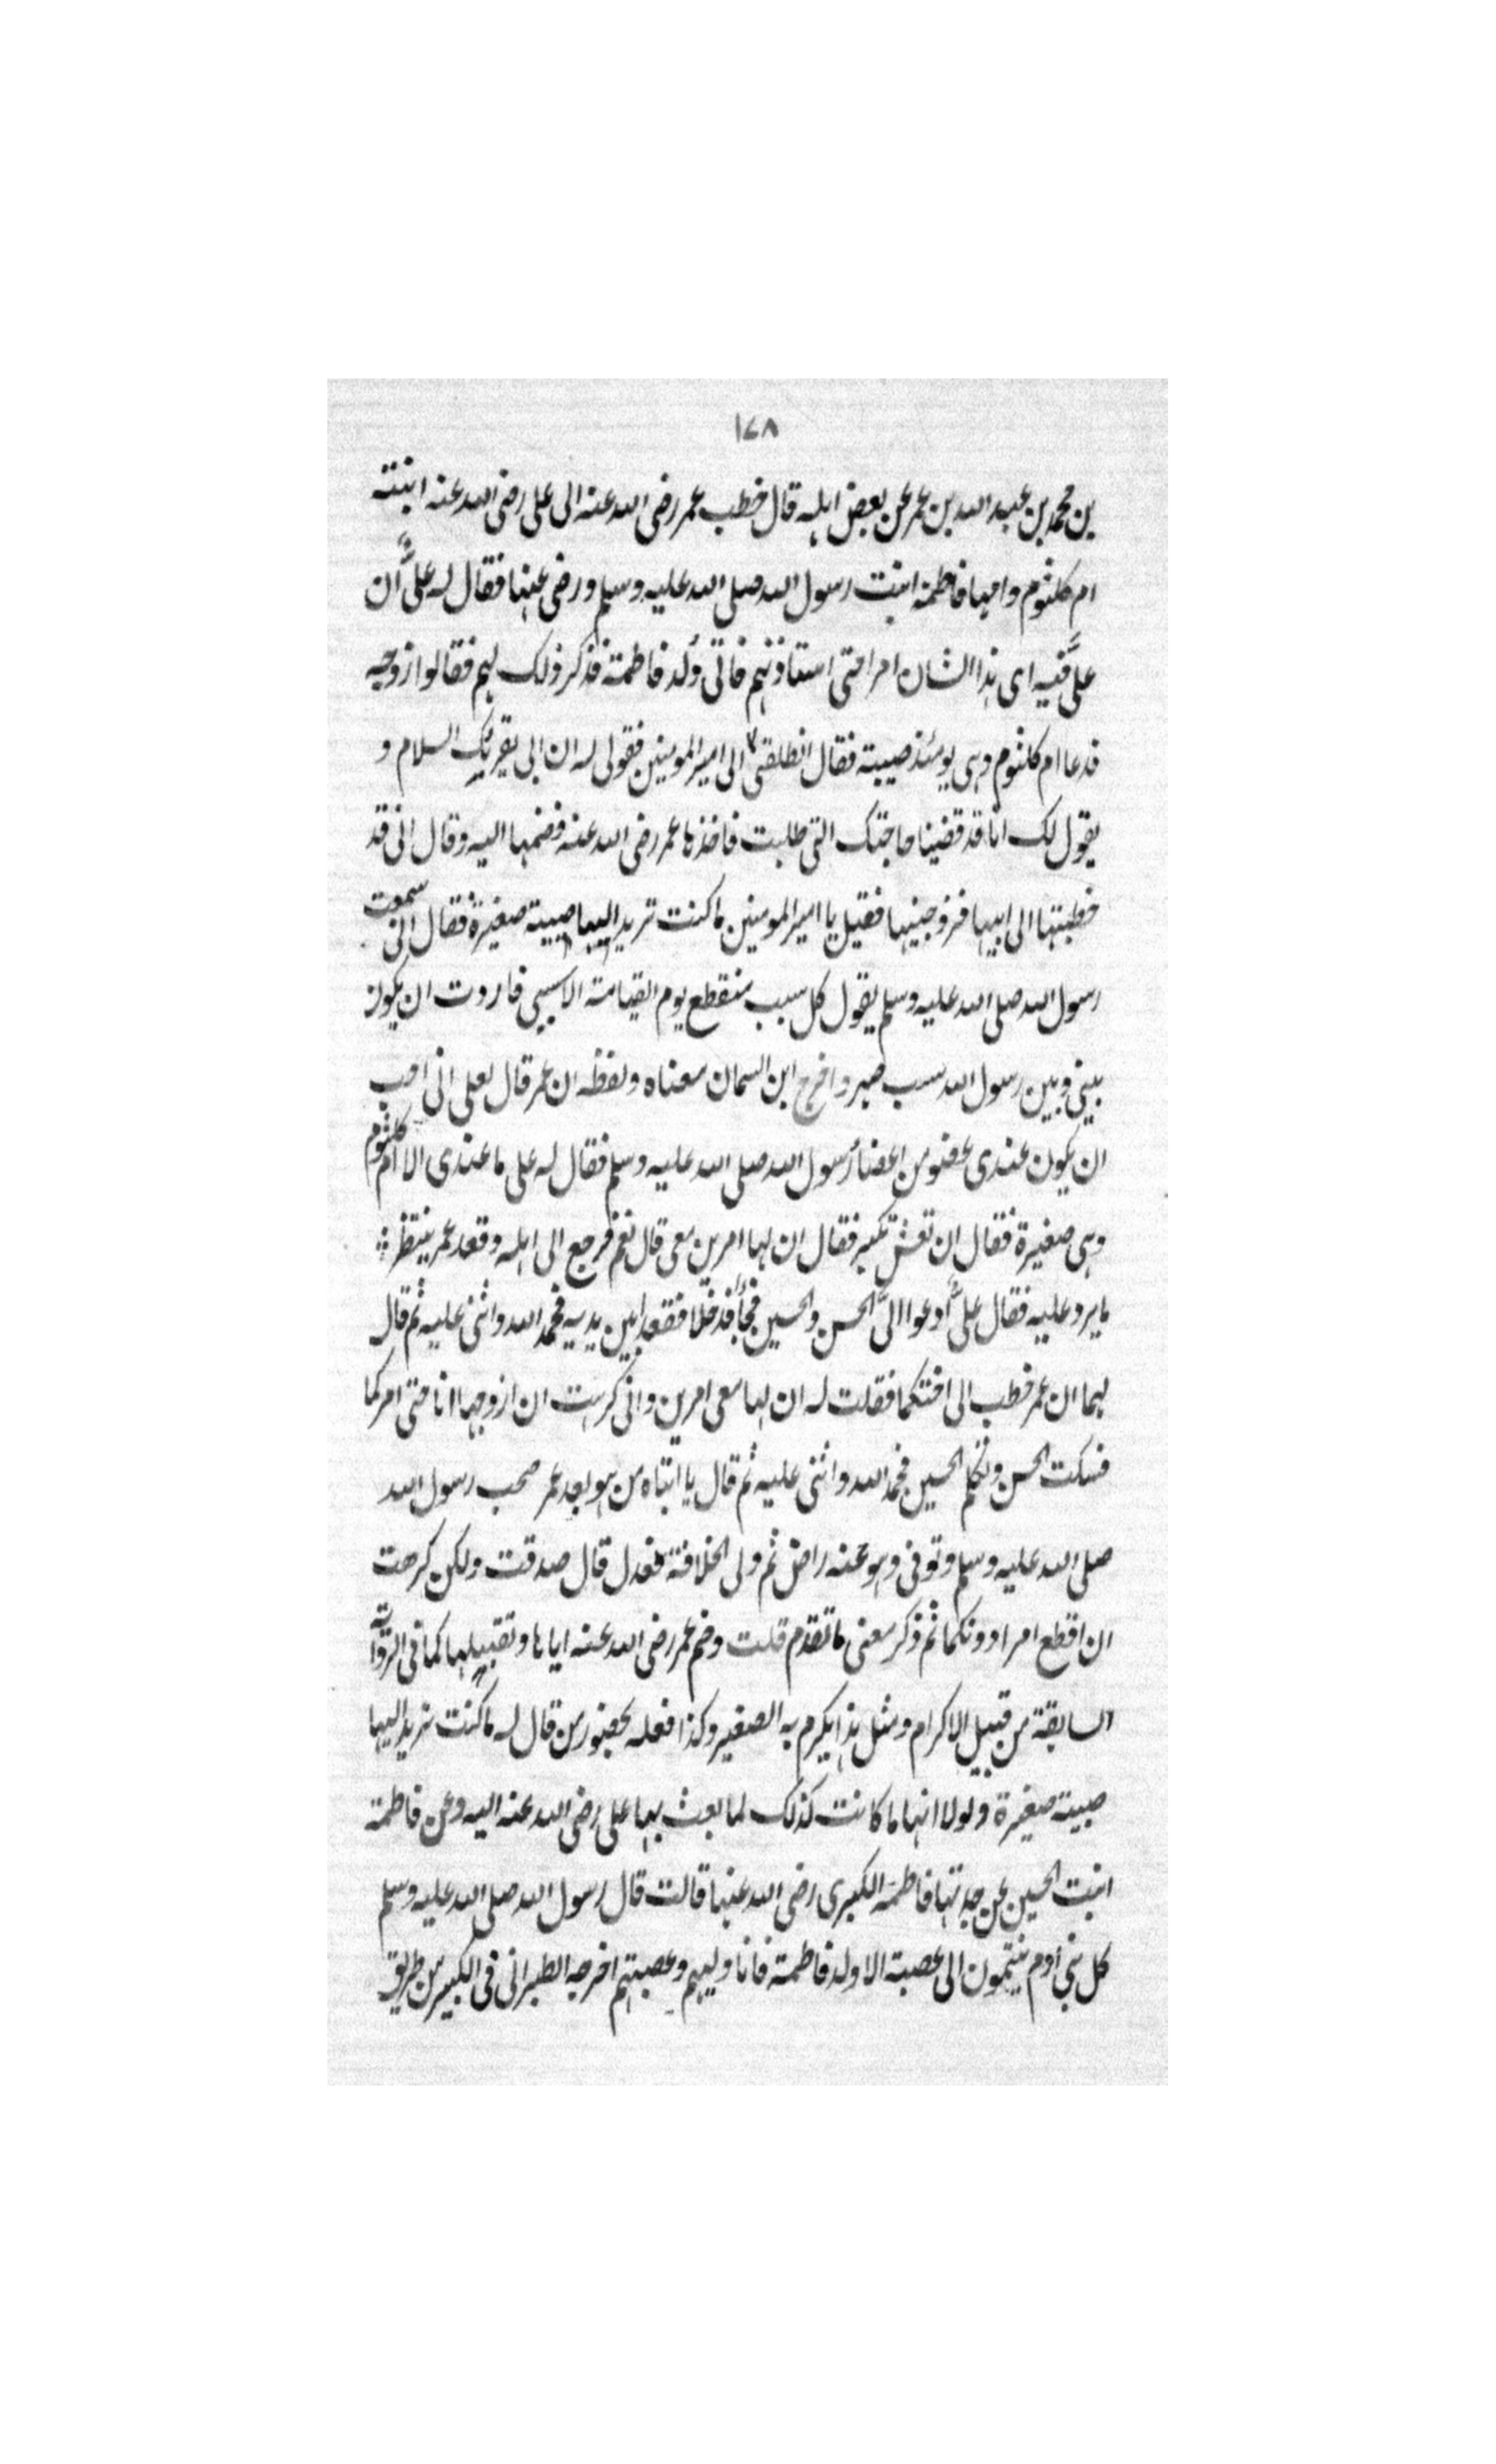 ١٧٨
بن محمد بن عبد الله بن عمر عن بعض اهله قال خطب عمر رضى الله عنه الى على رضى الله عنه ابنته
ام كلثوم وامها فاطمة ابنت رسول الله صلى الله عليه وسلم ورضى عنها فقال له علىٌّ ان
علىَّ فيه اى هذا الشان امرا حتى استاذنهم فاتى وُلد فاطمة فذكر ذلك لهم فقالوا زوجه
فدعا ام كلثوم وهى يومئذ صبية فقال انطلقى الى امير المومنين فقولى له ان ابى يقريك السلام و
يقول لك انا قد قضينا حاجتك التى طلبت فاخذها عمر رضى الله عنه فضمها اليه وقال انى قد
خطبتها الى ابيها فزوجنيها فقيل يا امير المومنين ما كنت تريد اليها صبية صغيرة فقال انى سمعت
رسول الله صلى الله عليه وسلم يقول كل سبب منقطع يوم القيامة الا سببى فاردت ان يكون
بينى وبين رسول الله سبب صهر واخرج ابن السمان معناه ولفظه ان عمر قال لعلى انى احب
ان يكون عندى عضو من اعضاء رسول الله صلى الله عليه وسلم فقال له على ما عندى الا ام كلثوم
وهى صغيرة فقال ان تعش تكبر فقال ان لها اميرين معى قال نعم فرجع الى اهله وقعد عمر ينتظر
ما يرد عليه فقال علىٌّ ادعوا الىَّ الحسن والحسين فجاءا فدخلا فقعدا بين يديه فحمد الله واثنى عليه ثم قال
لهما ان عمر خطب الى اختكما فقلت له ان لها معى اميرين وانى كرهت ان ازوجها انا حتى امركما
فسكت الحسن وتكلم الحسين فحمد الله واثنى عليه ثم قال يا ابتاه من هو بعد عمر صحب رسول الله
صلى الله عليه وسلم وتوفى وهو عنه راض ثم ولى الخلافة فعدل قال صدقت ولكن كرهت
ان اقطع امرا دونكما ثم ذكر معنى ما تقدم قلت وضم عمر رضى الله عنه اياها وتقبيلها كما فى الرواية
السابقة من قبيل الاكرام ومثل هذا يكرم به الصغير وكذا فعله بحضور من قال له ما كنت تريد اليها
صبية صغيرة ولولا انها ما كانت كذلك لما بعث بها على رضى الله عنه اليه وعن فاطمة
ابنت الحسين عن جدتها فاطمة الكبرى رضى الله عنها قالت قال رسول الله صلى الله عليه وسلم
كل بنى ادم ينتمون الى عصبة الا ولد فاطمة فانا وليهم وعصبتهم اخرجه الطبرانى فى الكبير من طريق